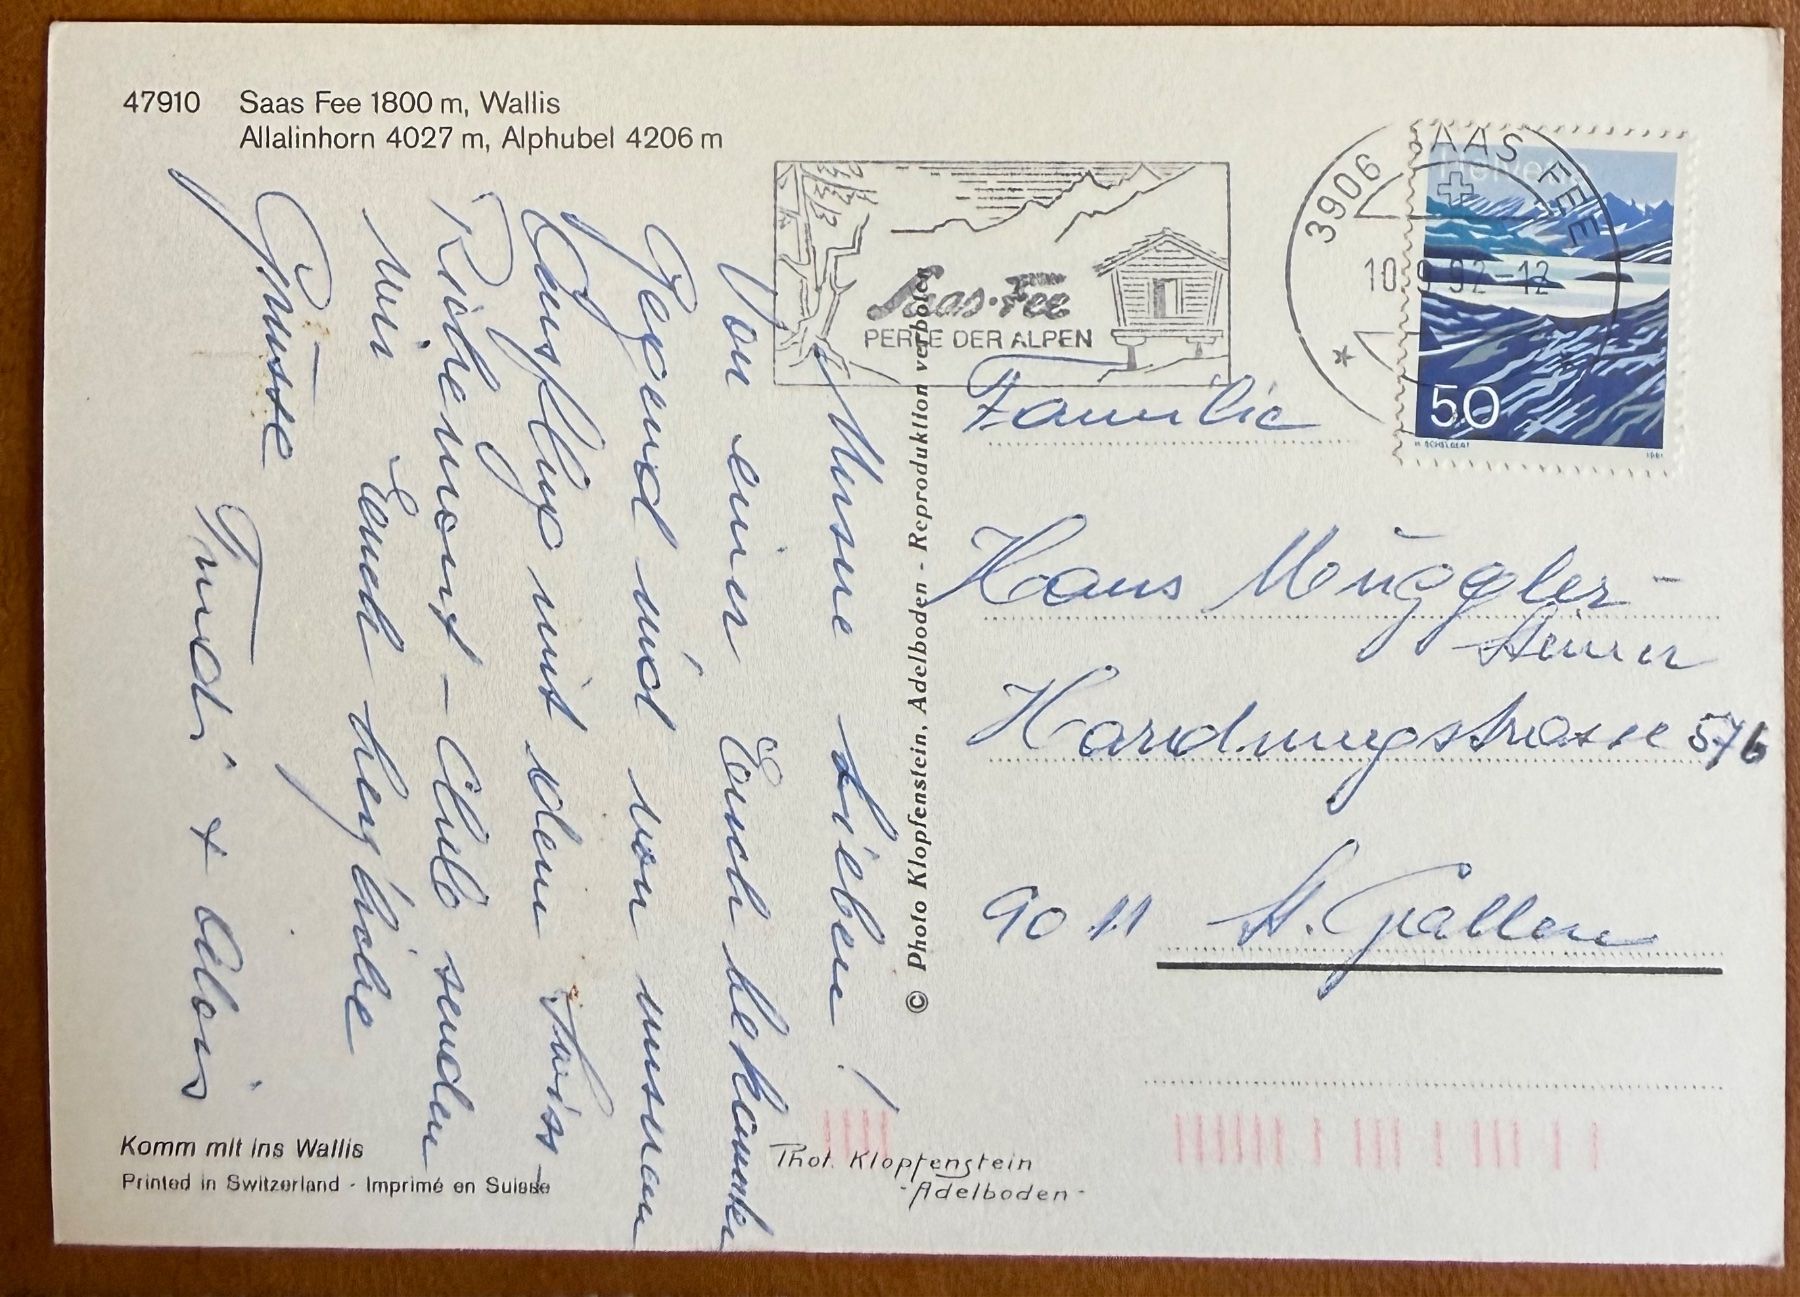 47910 Saas Fee 1800 m, Wallis
Allalinhorn 4027 m, Alphubel 4206 m
Saas-Fee
PERLE DER ALPEN
3906 SAAS FEE
10.9.92-12
Helvetia
50
1991
Unsere Lieben!
Von einer Euch bekannten
Gegend und von unserem
Ausflug mit dem Swiss-
Rivement-Club senden
wir Euch herzliche
Grüsse
Trudi + Alois
© Photo Klopfenstein, Adelboden - Reproduktion verboten
Familie
Hans Müggler-
Hardungstrasse 57b
9011 St. Gallen
Komm mit ins Wallis
Printed in Switzerland - Imprimé en Suisse
Phot. Klopfenstein
-Adelboden-